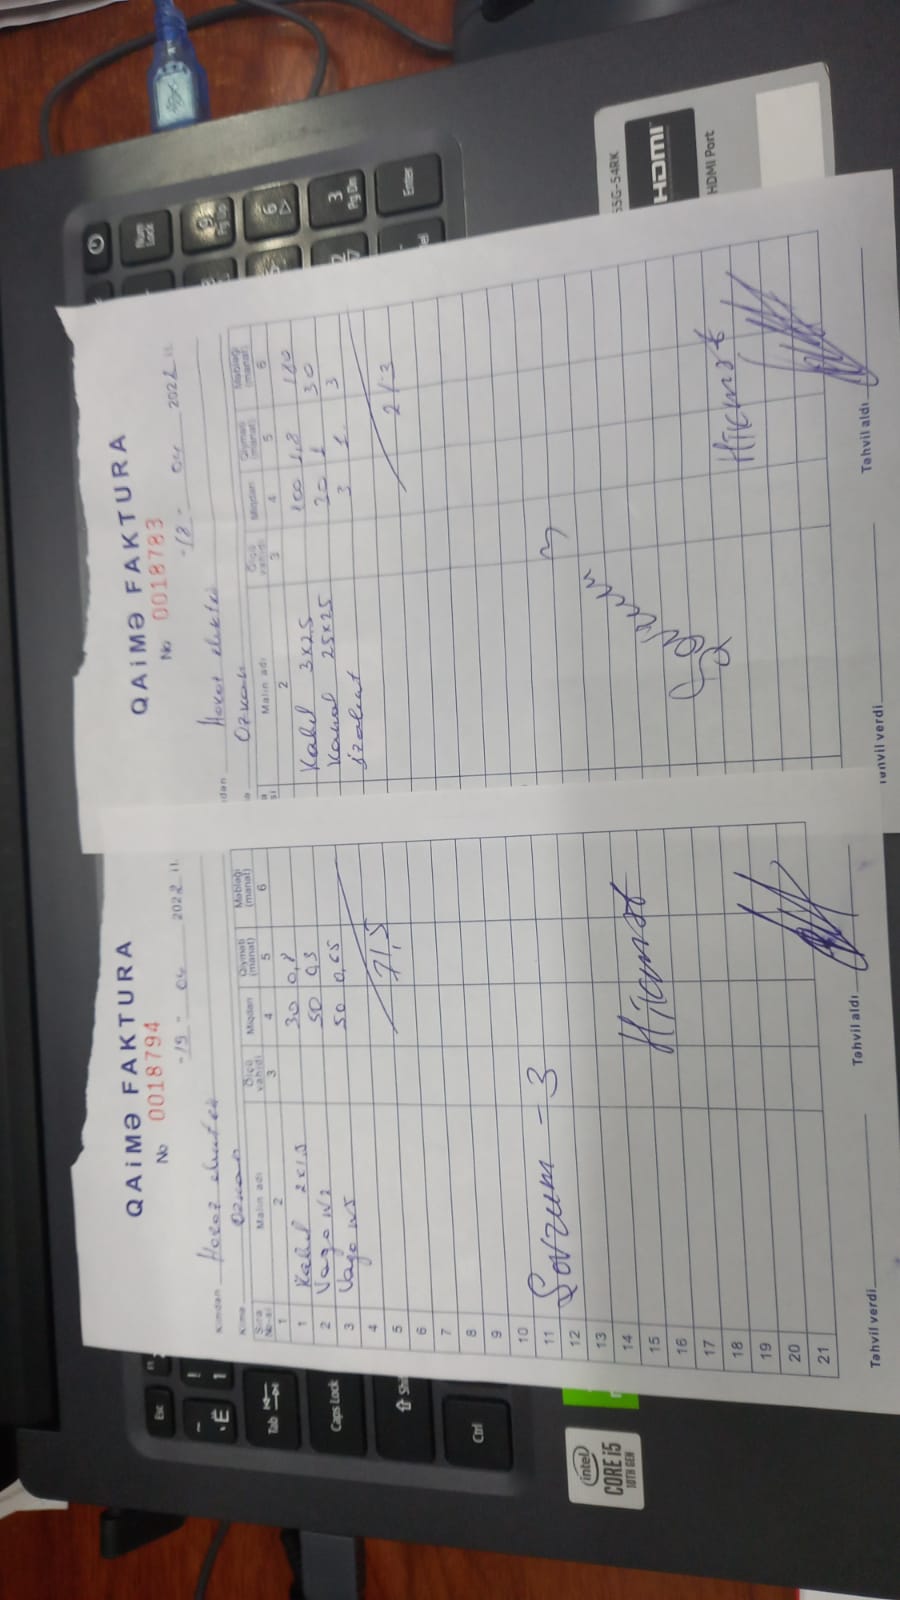 QAİMƏ FAKTURA
No 0018794
-19- 04 2022 il.
Kimdən
Kimə
Sıra №-si
Malın adı
Ölçü vahidi
Miqdarı
Qiyməti (manat)
Məbləği (manat)
1 2 3 4 5 6
1 Kabel 2x1.5 30 0,8
2 Vago 50 0,3
3 Vago 50 0,65
4
5 71,5
6
7
8
9
10
11 - 3
12
13
14 Hikmət
15
16
17
18
19
20
21
Təhvil verdi
Təhvil aldı
QAİMƏ FAKTURA
No 0018783
-18- 04 2022 il.
Malın adı
Ölçü vahidi
Miqdarı
Qiyməti (manat)
Məbləği (manat)
2 3 4 5 6
Kabel 3x2.5 100 1,8 180
Kanal 25x25 30 1 30
İzolent 3 1 3
213
Hikmət
Təhvil verdi
Təhvil aldı
Esc
Tab
Caps Lock
Ctrl
Num Lock
9 Pg Up
6
3 Pg Dn
Enter
intel
CORE i5
10TH GEN
HDMI
HDMI Port